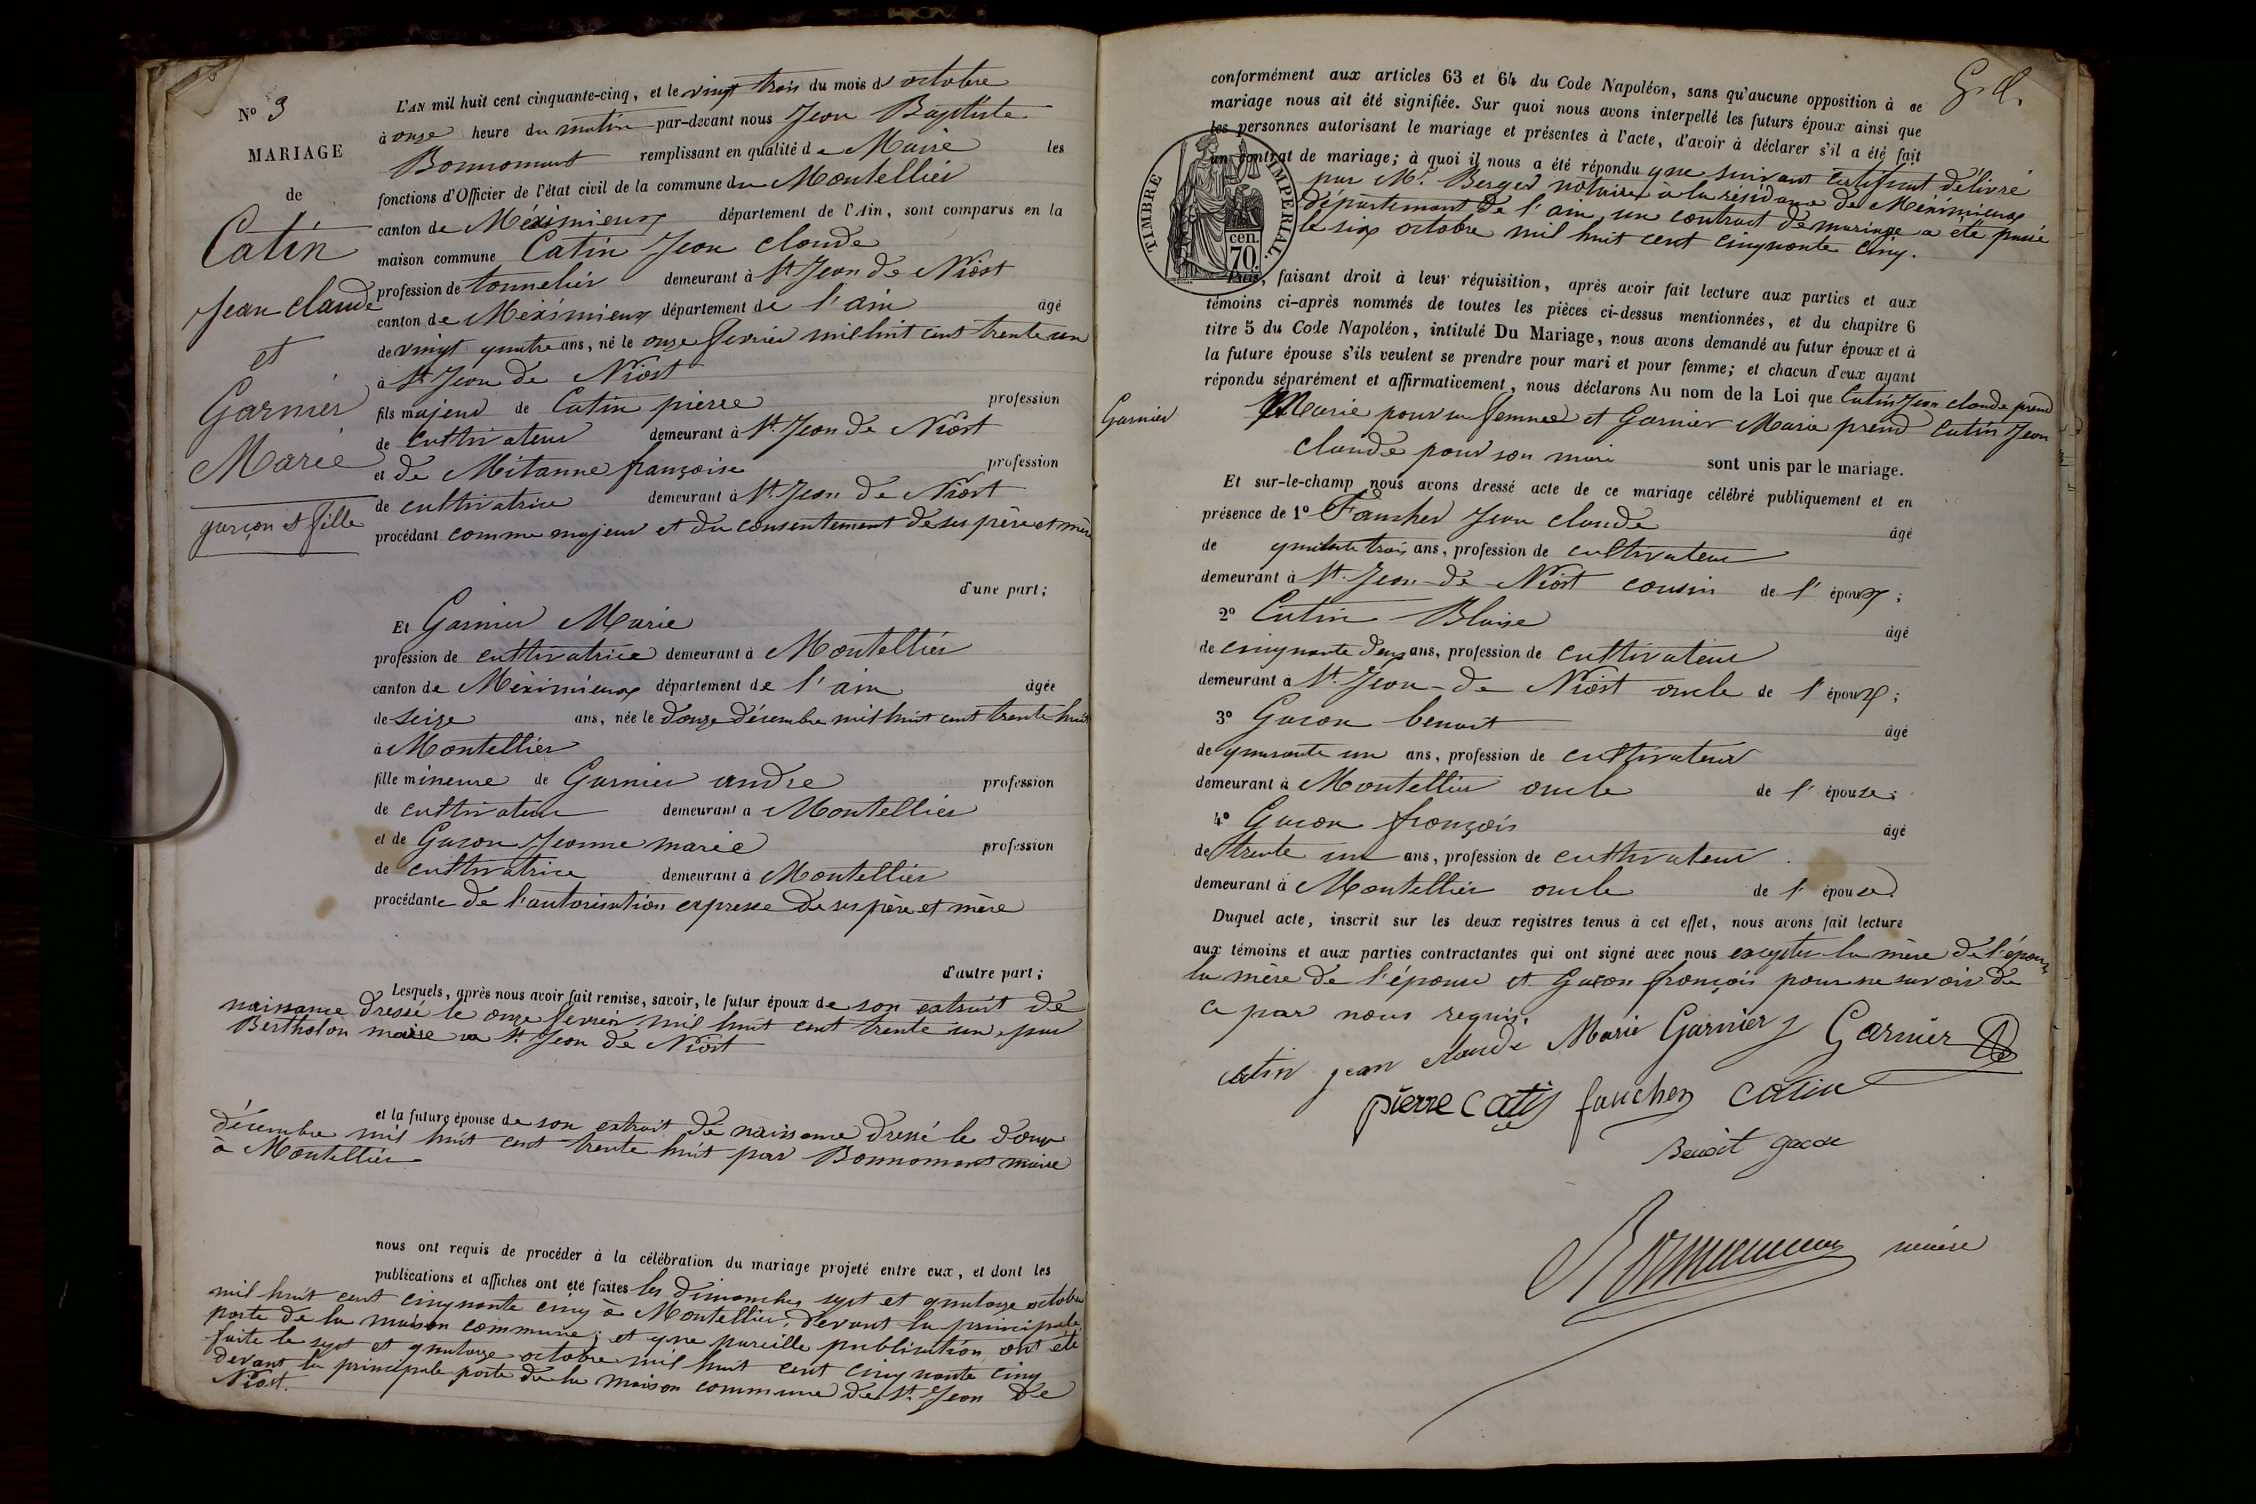 N° 3
MARIAGE
de
Catin
Jean claude
et
Garnier
Marie
garçon et fille
L'AN mil huit cent cinquante-cinq, et le vingt trois du mois d'octobre
à onze heure du matin par-devant nous Jean Baptiste
Bonnomant remplissant en qualité de Maire les
fonctions d'Officier de l'état civil de la commune du Montellier
canton de Méximieux département de l'Ain, sont comparus en la
maison commune Catin Jean claude
profession de tonnelier demeurant à St Jean de Niost
canton de Méximieux département de l'ain âgé
de vingt quatre ans, né le onze fevrier mil huit cent trente un
à St Jean de Niost
fils majeur de Catin pierre profession
de cultivateur demeurant à St Jean de Niost
et de Mitanne françoise profession
de cultivatrice demeurant à St Jean de Niost
procédant comme majeur et du consentement de ses père et mère
d'une part;
Et Garnier Marie
profession de cultivatrice demeurant à Montellier
canton de Méximieux département de l'ain âgée
de seize ans, née le douze décembre mil huit cent trente huit
à Montellier
fille mineure de Garnier andre profession
de cultivateur demeurant à Montellier
et de Gacon Jeanne marie profession
de cultivatrice demeurant à Montellier
procédante de l'autorisation expresse de ses père et mère
d'autre part;
Lesquels, après nous avoir fait remise, savoir, le futur époux de son extrait de
naissance dressé le onze fevrier mil huit cent trente un, par
Bertholon maire a St Jean de Niost
et la future épouse de son extrait de naissance dressé le douze
décembre mil huit cent trente huit par Bonnomant maire
à Montellier
nous ont requis de procéder à la célébration du mariage projeté entre eux, et dont les
publications et affiches ont été faites les dimanches sept et quatorze octobre
mil huit cent cinquante cinq à Montellier, devant la principale
porte de la maison commune; et que pareille publication ont été
faite le sept et quatorze octobre mil huit cent cinquante cinq
devant la principale porte de la maison commune de St Jean de
Niost.
conformément aux articles 63 et 64 du Code Napoléon, sans qu'aucune opposition à ce
mariage nous ait été signifiée. Sur quoi nous avons interpellé les futurs époux ainsi que
les personnes autorisant le mariage et présentes à l'acte, d'avoir à déclarer s'il a été fait
un contrat de mariage; à quoi il nous a été répondu que suivant certificat délivré
par Me. Berger notaire à la résidance de Méximieux
département de l'ain, un contract de mariage a été passé
le six octobre mil huit cent cinquante cinq.
TIMBRE IMPERIAL.
70 cen.
Puis, faisant droit à leur réquisition, après avoir fait lecture aux parties et aux
témoins ci-après nommés de toutes les pièces ci-dessus mentionnées, et du chapitre 6
titre 5 du Code Napoléon, intitulé Du Mariage, nous avons demandé au futur époux et à
la future épouse s'ils veulent se prendre pour mari et pour femme; et chacun d'eux ayant
répondu séparément et affirmativement, nous déclarons Au nom de la Loi que Catin Jean claude prend
Garnier Marie pour sa femme et Garnier Marie prend Catin Jean
claude pour son mari sont unis par le mariage.
Et sur-le-champ nous avons dressé acte de ce mariage célébré publiquement et en
présence de 1° Faucher Jean claude âgé
de trois ans, profession de cultivateur
demeurant à St Jean de Niost cousin de l'époux;
2° Catin Blaise âgé
de cinquante deux ans, profession de cultivateur
demeurant à St Jean de Niost oncle de l'époux;
3° Gacon benoit âgé
de quarante un ans, profession de cultivateur
demeurant à Montellier oncle de l'épouse;
4° Gacon françois âgé
de trente un ans, profession de cultivateur
demeurant à Montellier oncle de l'épouse
Duquel acte, inscrit sur les deux registres tenus à cet effet, nous avons fait lecture
aux témoins et aux parties contractantes qui ont signé avec nous excepter la mère de l'époux
la mère de l'épouse et Gacon françois pour ne savoir de
ce par nous requis.
catin jean claude Marie Garnier Garnier
pierre catin faucher catin
Benoit gacon
maire